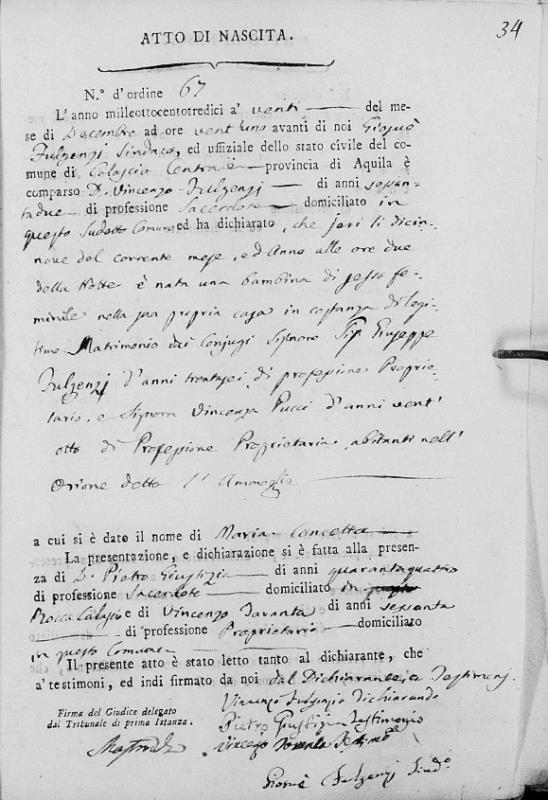 34
ATTO DI NASCITA.
N.° d'ordine 67
L'anno milleottocentotredici a' venti del me-
se di Decembre ad ore vent'uno avanti di noi Giosuè
Fulgenzj Sindaco, ed uffiziale dello stato civile del co-
mune di Calascio Centrale provincia di Aquila è
comparso D. Vincenzo Fulgenzj di anni sessan-
tadue di professione Sacerdote domiciliato in
questo Sudetto Comune ed ha dichiarato, che jeri li dicin-
nove del corrente mese, ed Anno alle ore due
della Notte è nata una bambina di sesso fe-
minile nella sua propria casa in costanza di legi-
timo Matrimonio dai Conjugi Signore Giuseppe
Fulgenzj d'anni trentasei, di professione Proprie-
tario, e Signora Vincenza Pucci d'anni vent'
otto di Professione Proprietaria, abitanti nell'
Orione detto
a cui si è dato il nome di Maria Concetta
La presentazione, e dichiarazione si è fatta alla presen-
za di D. Pietro Giustizia di anni quarantaquattro
di professione Sacerdote domiciliato in
Rocca Calascio e di Vincenzo Taranta di anni sessanta
di professione Proprietario domiciliato
in questo Comune
Il presente atto è stato letto tanto al dichiarante, che
a' testimoni, ed indi firmato da noi dal Dichiarante, e Testimonj
Vincenzo Fulgenzio Dichiarande
Firma del Giudice delegato
dal Tribunale di prima Istanza.
Pietro Giustizia Testimonio
Giosuè Fulgenzj Sind.°